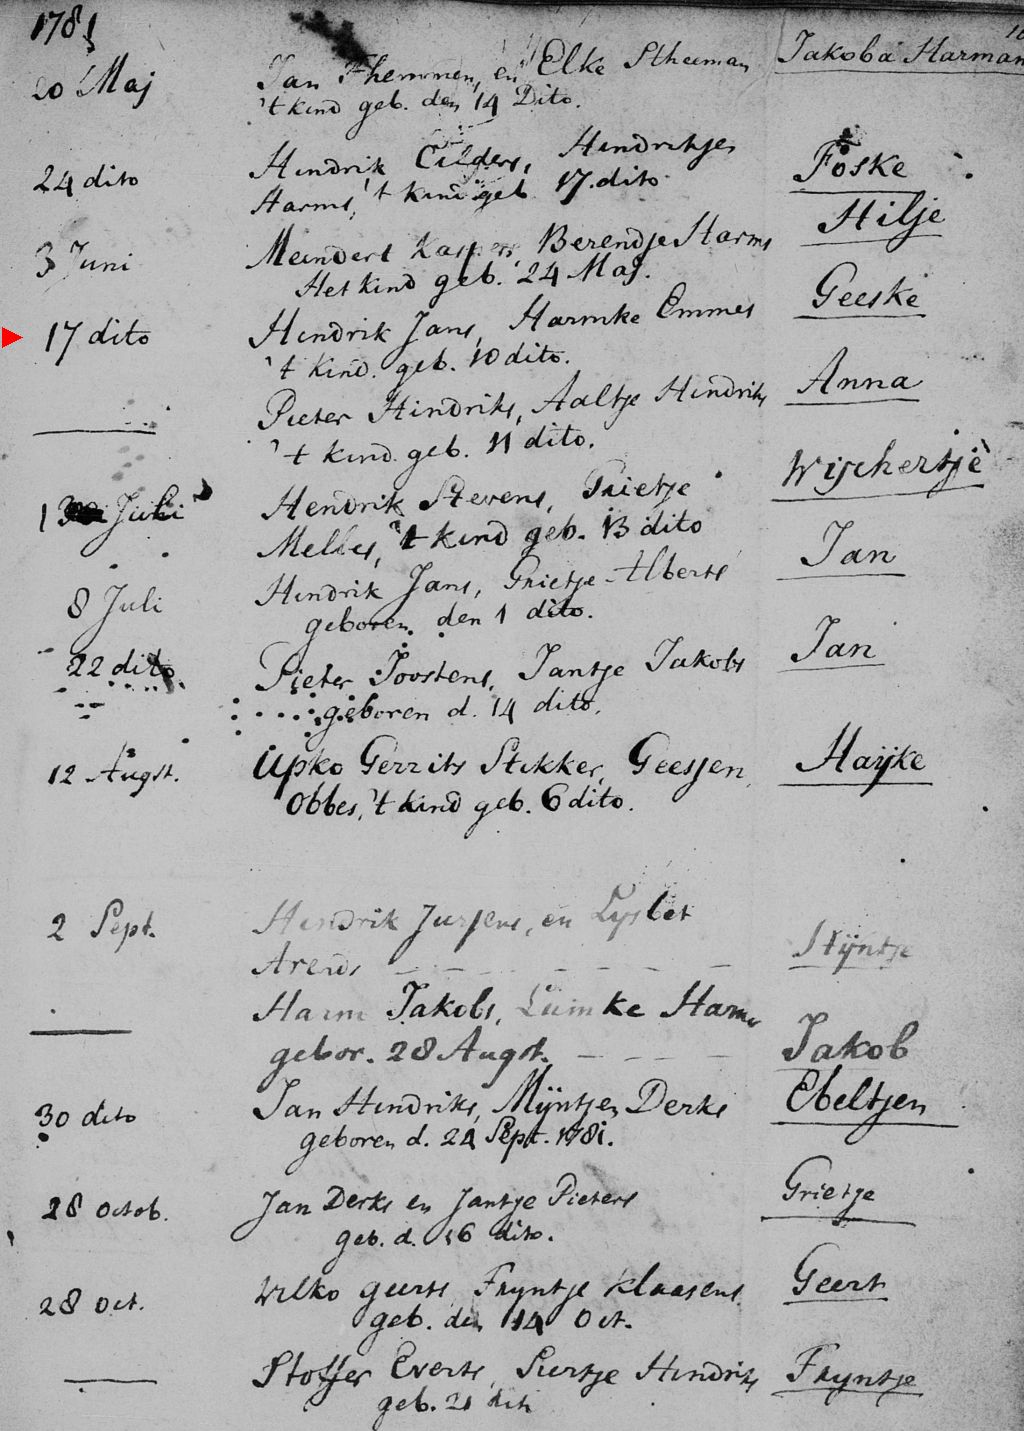 1781
20 Maj Jan Fhemmen, en Elke Stheeman Jakoba Harman
't kind geb. den 14 Dito.
24 dito Hindrik Eilders, Hindrikjen Foske
Harms, 't kind geb 17. dito
3 Juni Meindert Kaspers, Berendje Harms Hilje
Het kind geb. 24 Maj.
17 dito Hindrik Jans, Harmke Emmes Geeske
't kind. geb. 10 dito.
Pieter Hindriks, Aaltje Hindriks Anna
't kind geb. 11 dito.
1 Juli Hendrik Stevens, Grietje Wijchertje
Melles, 't kind geb. 13 dito
8 Juli Hindrik Jans, Grietje Alberts Jan
geboren den 1 dito.
22 dito Pieter Joostens, Jantje Jakobs Jan
geboren d. 14 dito.
12 Augst. Upko Gerrits Stikker, Geesjen Haijke
Obbes, 't kind geb. 6 dito.
2 Sept. Hindrik Jurjens, en Lysbet Stijntje
Arends
Harm Jakobs, Luimke Harms Jakob
gebor. 28 Augst.
30 dito Jan Hindriks, Mijntjen Derks Ebeltjen
geboren d. 24 Sept. 1781.
28 octob. Jan Derks en Jantje Pieters Grietje
geb. d. 16 dito.
28 oct. Wilko geerts Fryntje Klaasens Geert
geb. den 14 Oct.
Stoffer Everts, Siertje Hindriks Fryntje
geb. 21 dito